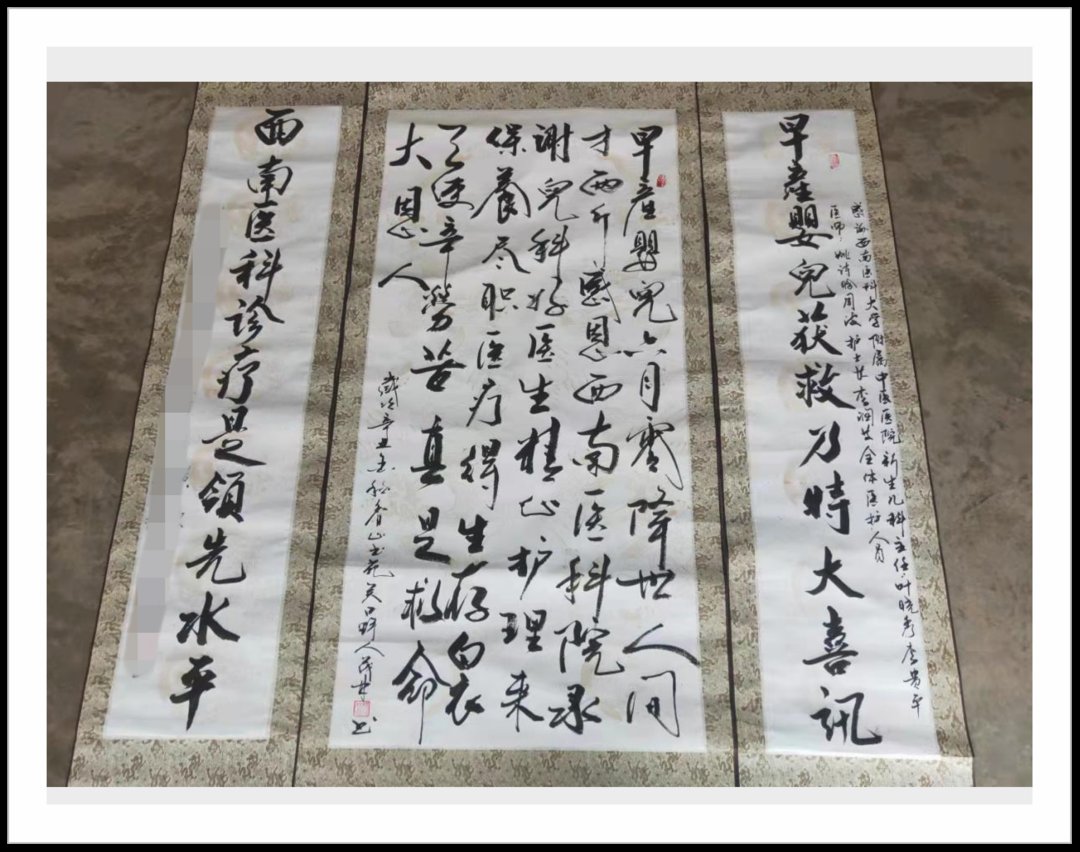 早產嬰兒获救乃特大喜讯
感谢西南医科大学附属中医医院新生儿科主任叶晓秀李贵平
医师姚诗 周波护士长李润生全体医护人员
早產嬰兒六月零降世人间
才两斤感恩西南医科院永
谢兒科好医生精心护理来
保養尽职医疗得生存白衣
天使辛勞苦真是救命
大恩人
歲次辛丑 香山书苑 人 书
西南医科诊疗是领先水平